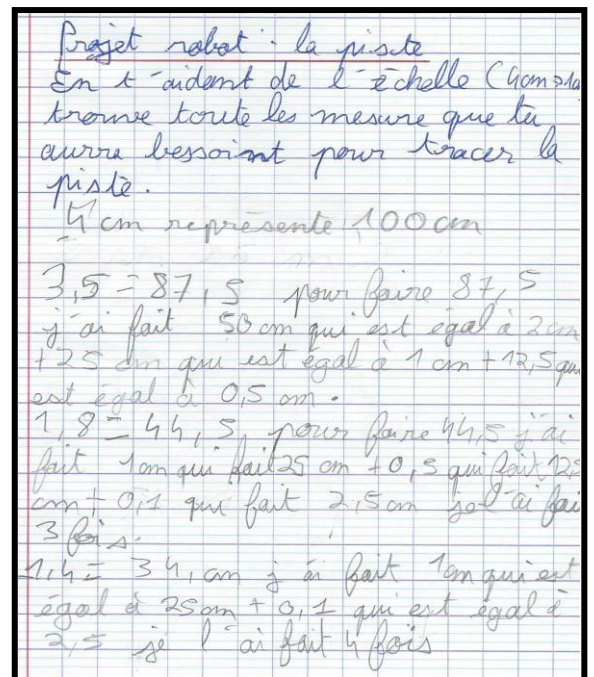 Projet robot : la piste
En t'aidant de l'échelle (4cm⇒1m
trouve toute les mesure que tu
aurra bessoint pour tracer la
piste.
4 cm représente 100 cm
3,5 = 87,5 pour faire 87,5
j'ai fait 50 cm qui est égal à 2 cm
+ 25 cm qui est égal à 1 cm + 12,5 qui
est égal à 0,5 cm.
1,8 = 44,5 pour faire 44,5 j'ai
fait 1cm qui fait 25 cm + 0,5 qui fait 12,5
cm + 0,1 qui fait 2,5 cm je l'ai fai
3 fois.
1,4 = 34, cm j'ai fait 1cm qui est
égal à 25 cm + 0,1 qui est égal à
2,5 je l'ai fait 4 fois